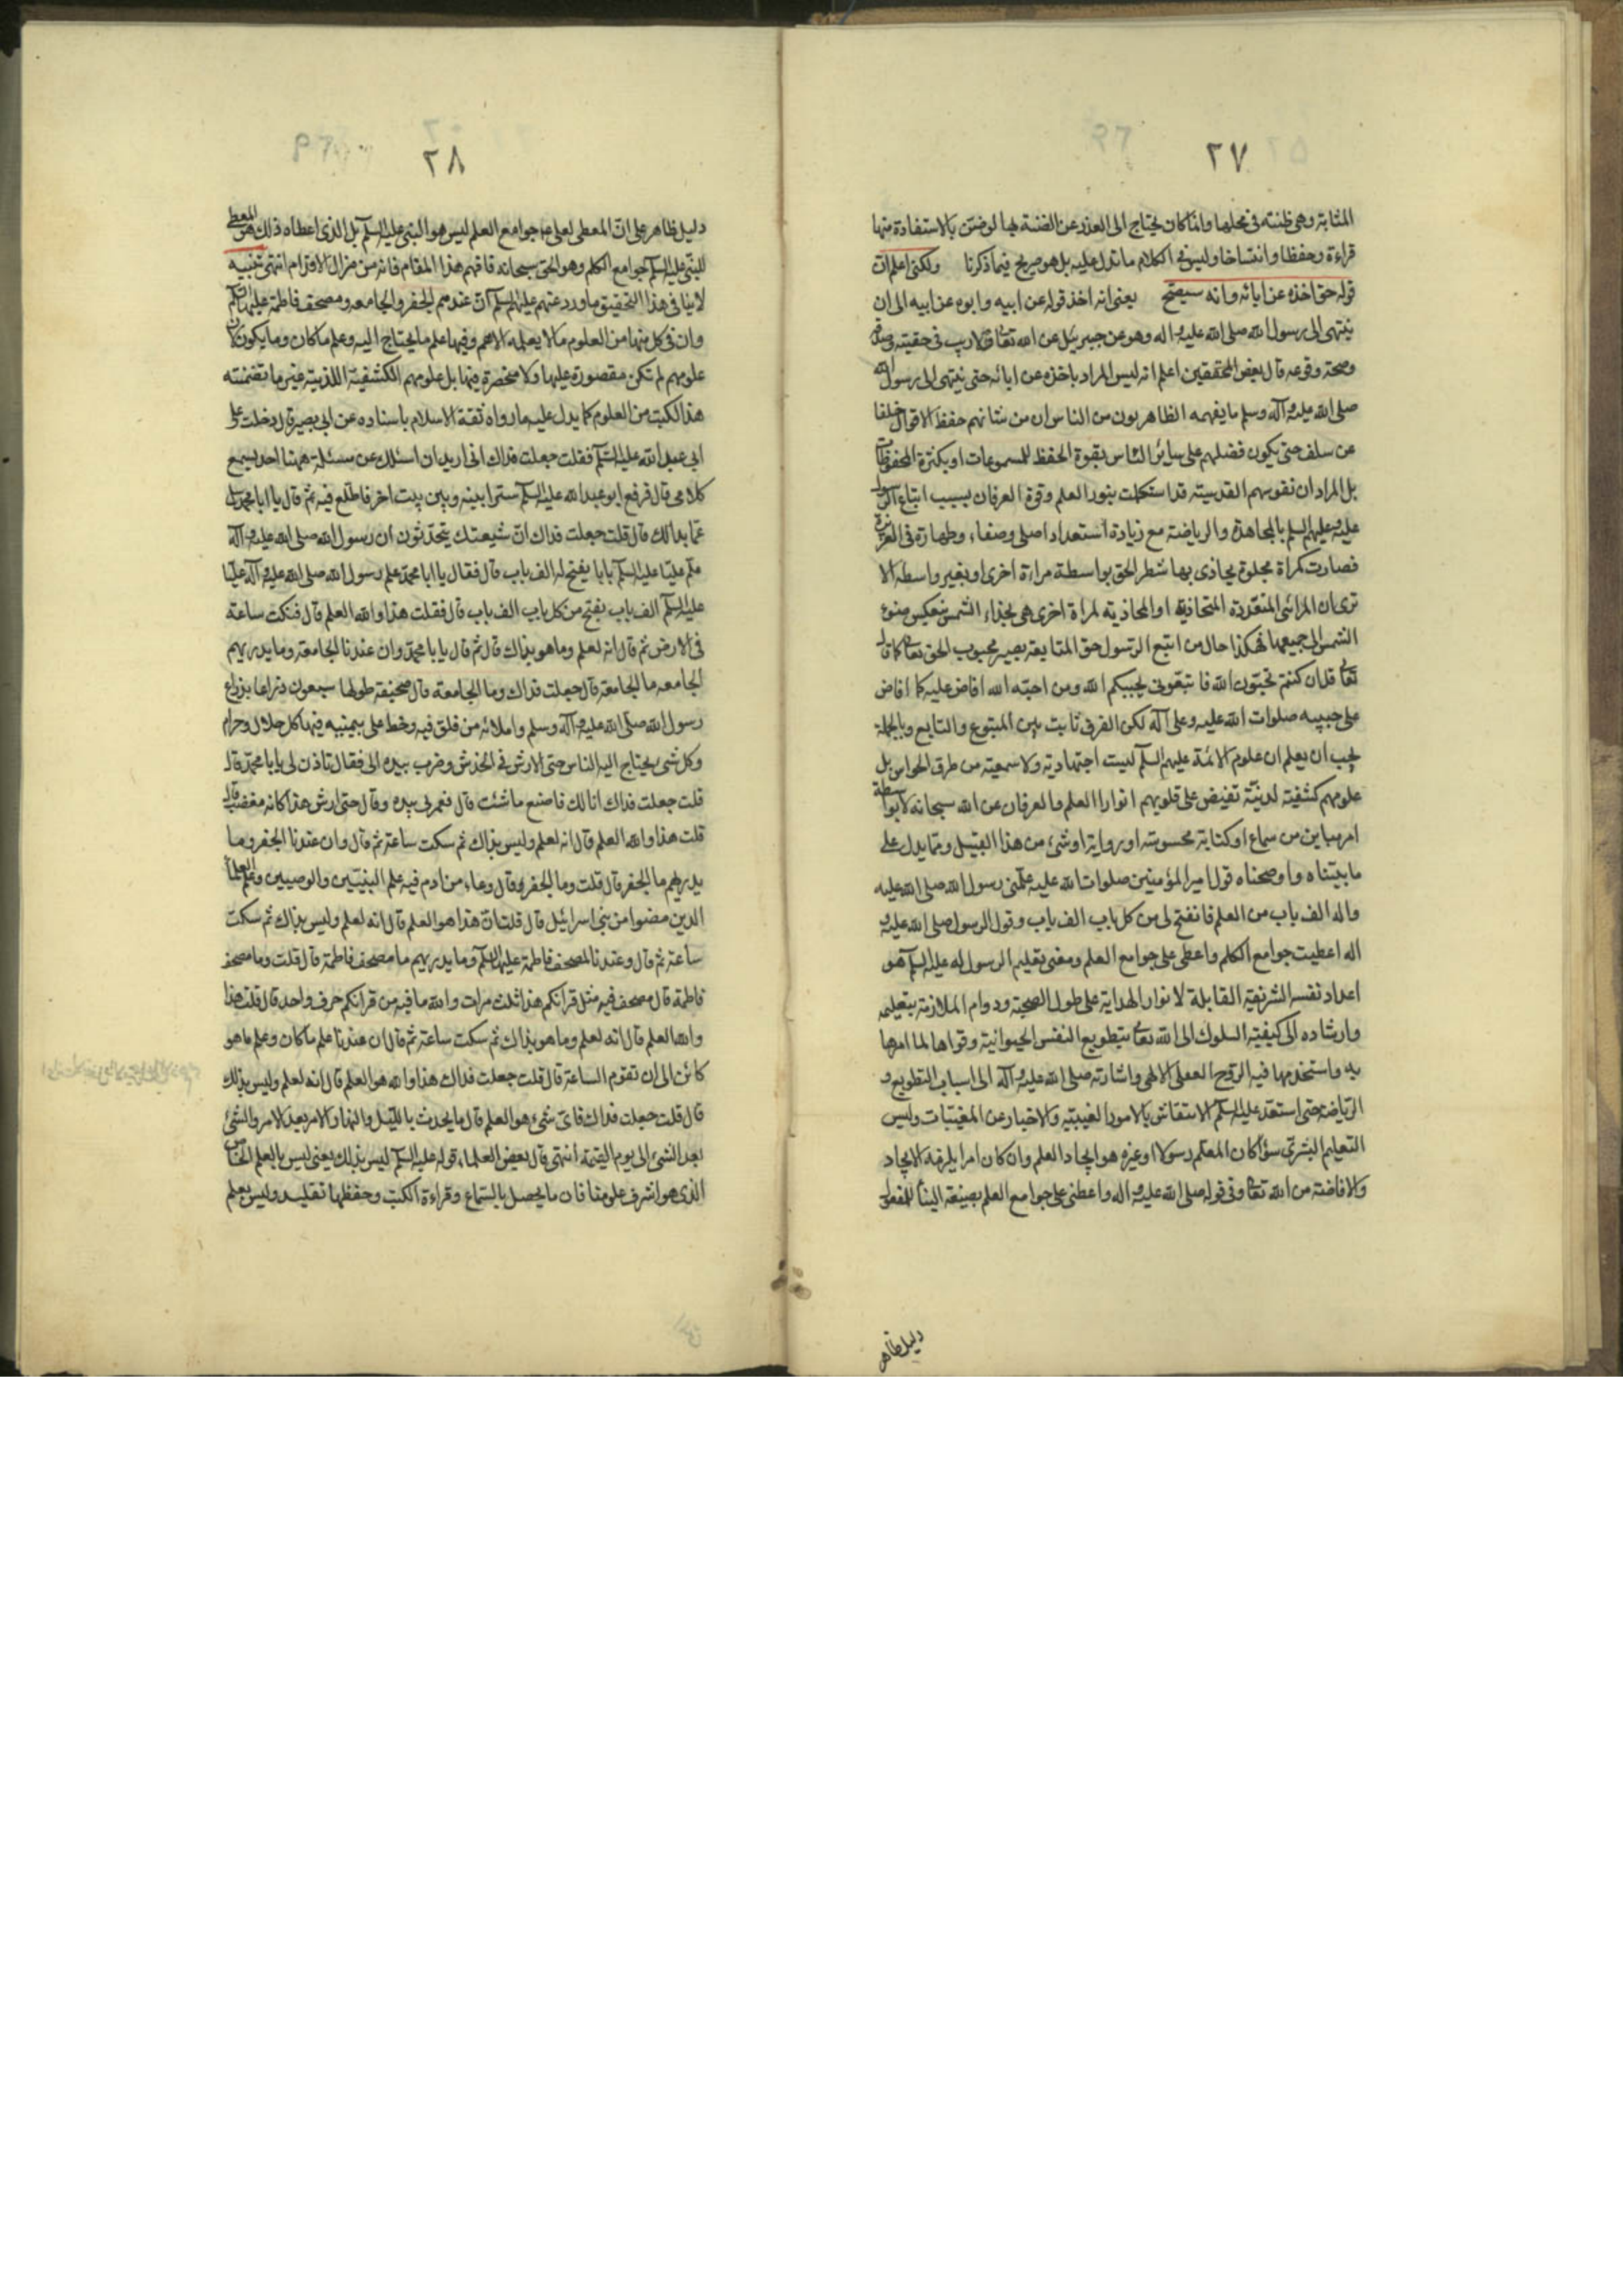 ٢٧
المثابة وهى ظنته فى محلها وانما كان يحتاج الى العذر عن الضنة بها لو ضن بالاستفادة منها
قراءة وحفظا وانتساخا وليس فى الكلام ما تدل عليه بل هو صريح فيما ذكرنا ولكنى اعلم ان
قوله حق اخذه عن ابائه وانه سيصح يعنى انه اخذ قوله عن ابيه وابوه عن ابيه الى ان
ينتهى الى رسول الله صلى الله عليه واله وهو عن جبرئيل عن الله تعالى فلا ريب فى حقيته وصدقه
وصحة وقوعه قال بعض المحققين اعلم انه ليس المراد باخذه عن ابائه حتى ينتهى الى رسول الله
صلى الله عليه وآله وسلم ما يفهمه الظاهريون من الناس ان من شانهم حفظ الاقوال خلفا
عن سلف حتى يكون فضلهم على سائر الناس بقوة الحفظ للمسموعات او بكثرة المحفوظات
بل المراد ان نفوسهم القدسية قد استكملت بنور العلم وقوة العرفان بسبب اتباع الرسول
عليه وعليهم السلم بالمجاهدة والرياضة مع زيادة استعداد اصلى وصفاء وطهارة فى الغريزة
فصارت كمراة مجلوة يحاذى بها شطر الحق بواسطة مراة اخرى او بغير واسطه الا
ترى ان المرائى المتعددة المتحاذية او المحاذية لمراة اخرى هى بحذاء الشمس ينعكس ضوء
الشمس الى جميعها فهكذا حال من اتبع الرسول حق المتابعة يصير محبوب الحق تعالى كما قال
تعالى قل ان كنتم تحبون الله فاتبعونى يحببكم الله ومن احبه الله افاض عليه كما افاض
على حبيبه صلوات الله عليه وعلى آله لكن الفرق ثابت بين المتبوع والتابع وبالجملة
يجب ان يعلم ان علوم الائمة عليهم السلم ليست اجتهادية ولا سمعية من طرق الحواس بل
علومهم كشفية لدنية تفيض على قلوبهم انوار العلم والعرفان عن الله سبحانه لا بواسطة
امر مباين من سماع او كتابة محسوسة او رواية او شىء من هذا القبيل ومما يدل على
ما بيناه واوضحناه قول امير المؤمنين صلوات الله عليه علمنى رسول الله صلى الله عليه
واله الف باب من العلم فانفتح لى من كل باب الف باب وقول الرسول صلى الله عليه و
اله اعطيت جوامع الكلم واعطى على جوامع العلم ومعنى تعليم الرسول له عليه السلم هو
اعداد نفسه الشريفة القابلة لانوار الهداية على طول الصحبة ودوام الملازمة بتعليمه
وارشاده الى كيفية السلوك الى الله تعالى بتطويع النفس الحيوانية وقواها لما امرها
به واستخدمها فيه الروح العقلى الالهى واشارته صلى الله عليه وآله الى اسباب التطويع و
الرياضة حتى استعد عليه السلم لانتقاش بالامور الغيبية والاخبار عن المغيبات وليس
التعليم البشرى سواء كان المعلم رسولا او غيره هو ايجاد العلم وان كان امرا يلزمه الايجاد
والافاضة من الله تعالى وفى قوله صلى الله عليه واله واعطى على جوامع العلم بصيغة البناء للمفعول
دليل ظاهر
٢٨
دليل ظاهر على ان المعطى لعلى ع جوامع العلم ليس هو النبى عليه السلم بل الذى اعطاه ذلك هو المعطى
للنبى عليه السلم جوامع الكلم وهو الحق سبحانه فافهم هذا المقام فانه من مزال الاقدام انتهى تنبيه
لا ينافى هذا التحقيق ما ورد عنهم عليهم السلم ان عندهم الجفر والجامعه ومصحف فاطمة عليها السلم
وان فى كل منها من العلوم ما لا يعلمه الا هم وفيها علم ما يحتاج اليه وعلم ما كان وما يكون لان
علومهم لم تكن مقصورة عليها ولا منحصرة فيها بل علومهم الكشفية اللدنية غير ما تضمنته
هذه الكتب من العلوم كما يدل عليه ما رواه ثقة الاسلام باسناده عن ابى بصير قال دخلت على
ابى عبد الله عليه السلم فقلت جعلت فداك انى اريد ان اسئلك عن مسئلة ههنا احد يسمع
كلامى قال فرفع ابو عبد الله عليه السلم سترا بينه وبين بيت اخر فاطلع فيه ثم قال يا ابا محمد سل
عما بدا لك قال قلت جعلت فداك ان شيعتك يتحدثون ان رسول الله صلى الله عليه وآله
علم عليا عليه السلم بابا يفتح له الف باب قال فقال يا ابا محمد علم رسول الله صلى الله عليه وآله عليا
عليه السلم الف باب يفتح من كل باب الف باب قال فقلت هذا والله العلم قال فنكت ساعة
فى الارض ثم قال انه لعلم وما هو بذاك قال ثم قال يا با محمد وان عندنا الجامعة وما يدريهم
الجامعه ما الجامعة قال جعلت فداك وما الجامعة قال صحيفة طولها سبعون ذراعا بذراع
رسول الله صلى الله عليه وآله وسلم واملائه من فلق فيه وخط على بيمينه فيها كل حلال وحرام
وكل شىء يحتاج اليه الناس حتى الارش فى الخدش وضرب بيده الى فقال تاذن لى يابا محمد قال
قلت جعلت فداك انا لك فاصنع ما شئت قال فغمزنى بيده وقال حتى ارش هذا كانه مغضب قال
قلت هذا والله العلم قال انه لعلم وليس بذاك ثم سكت ساعة ثم قال وان عندنا الجفر وما
يدريهم ما الجفر قال قلت وما الجفر قال وعاء من ادم فيه علم النبيين والوصيين وعلم العلماء
الذين مضوا من بنى اسرائيل قال قلت ان هذا هو العلم قال انه لعلم وليس بذاك ثم سكت
ساعة ثم قال وعندنا لمصحف فاطمة عليها السلم وما يدريهم ما مصحف فاطمة قال قلت وما مصحف
فاطمة قال مصحف فيه مثل قرانكم هذا ثلث مرات والله ما فيه من قرانكم حرف واحد قال قلت هذا
والله العلم قال انه لعلم وما هو بذاك ثم سكت ساعة ثم قال ان عندنا علم ما كان وعلم ما هو
كائن الى ان تقوم الساعة قال قلت جعلت فداك هذا والله هو العلم قال انه لعلم وليس بذلك
قال قلت جعلت فداك فاى شىء هو العلم قال ما يحدث بالليل والنهار والامر بعد الامر والشئ
بعد الشئ الى يوم القيمة انتهى قال بعض العلماء قوله عليه السلم ليس بذلك يعنى ليس بالعلم الخاص
الذى هو اشرف علومنا فان ما يحصل بالسماع وقراءة الكتب وحفظها تقليد وليس بعلم